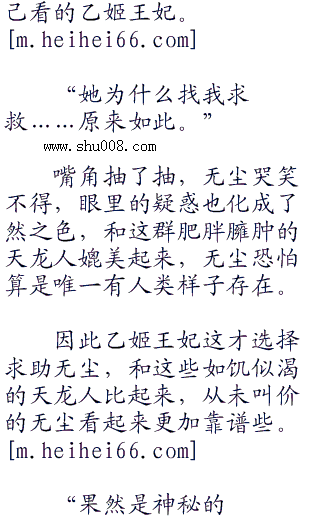 己看的乙姬王妃。
[m.heihei66.com]
“她为什么找我求
救……原来如此。”
www.shu008.com
嘴角抽了抽，无尘哭笑
不得，眼里的疑惑也化成了
然之色，和这群肥胖臃肿的
天龙人媲美起来，无尘恐怕
算是唯一有人类样子存在。
因此乙姬王妃这才选择
求助无尘，和这些如饥似渴
的天龙人比起来，从未叫价
的无尘看起来更加靠谱些。
[m.heihei66.com]
“果然是神秘的